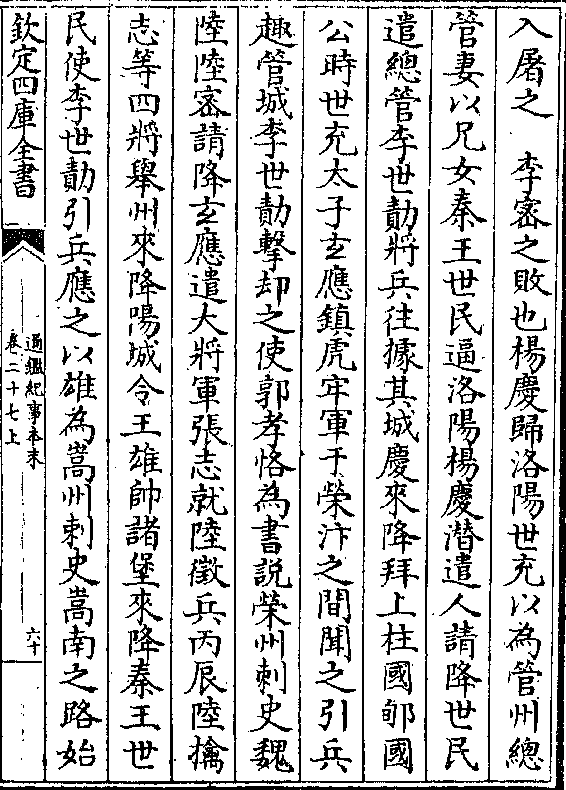 入屠之　李密之敗也楊慶歸洛陽世充以為管州總
管妻以兄女秦王世民逼洛陽楊慶潛遣人請降世民
遣總管李世勣將兵往據其城慶來降拜上柱國郇國
公時世充太子玄應鎮虎牢軍于榮汴之間聞之引兵
趣管城李世勣擊却之使郭孝恪為書說榮州刺史魏
陸陸密請降玄應遣大將軍張志就陸徵兵丙辰陸擒
志等四將舉州來降陽城令王雄帥諸堡來降秦王世
民使李世勣引兵應之以雄為嵩州刺史嵩南之路始
欽定四庫全書
通鑑紀事本末
卷二十七上
六十